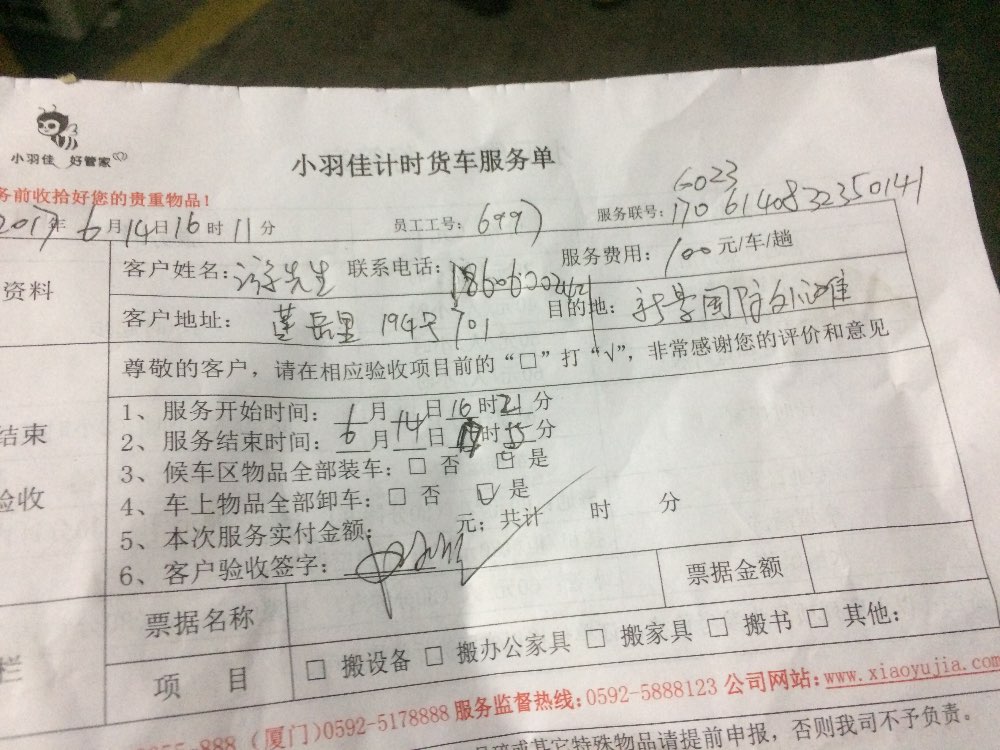 小羽佳 好管家
小羽佳计时货车服务单
务前收拾好您的贵重物品!
6023
2017年6月14日16时11分 员工工号: 6997 服务联号: 1706140832350141
资料
客户姓名: 先生 联系电话: 服务费用: 100元/车/趟
客户地址: 莲岳里194号701 目的地:
尊敬的客户，请在相应验收项目前的“□”打“√”，非常感谢您的评价和意见
结束
验收
1、服务开始时间: 6月14日16时21分
2、服务结束时间: 6月14日 时15分
3、候车区物品全部装车: □ 否 □ 是
4、车上物品全部卸车: □ 否 □ 是
5、本次服务实付金额: 元; 共计 时 分
6、客户验收签字:
票据名称 票据金额
栏
项 目 □ 搬设备 □ 搬办公家具 □ 搬家具 □ 搬书 □ 其他:
-888 (厦门)0592-5178888 服务监督热线:0592-5888123 公司网站:www.xiaoyujia.com
或其它特殊物品请提前申报，否则我司不予负责。